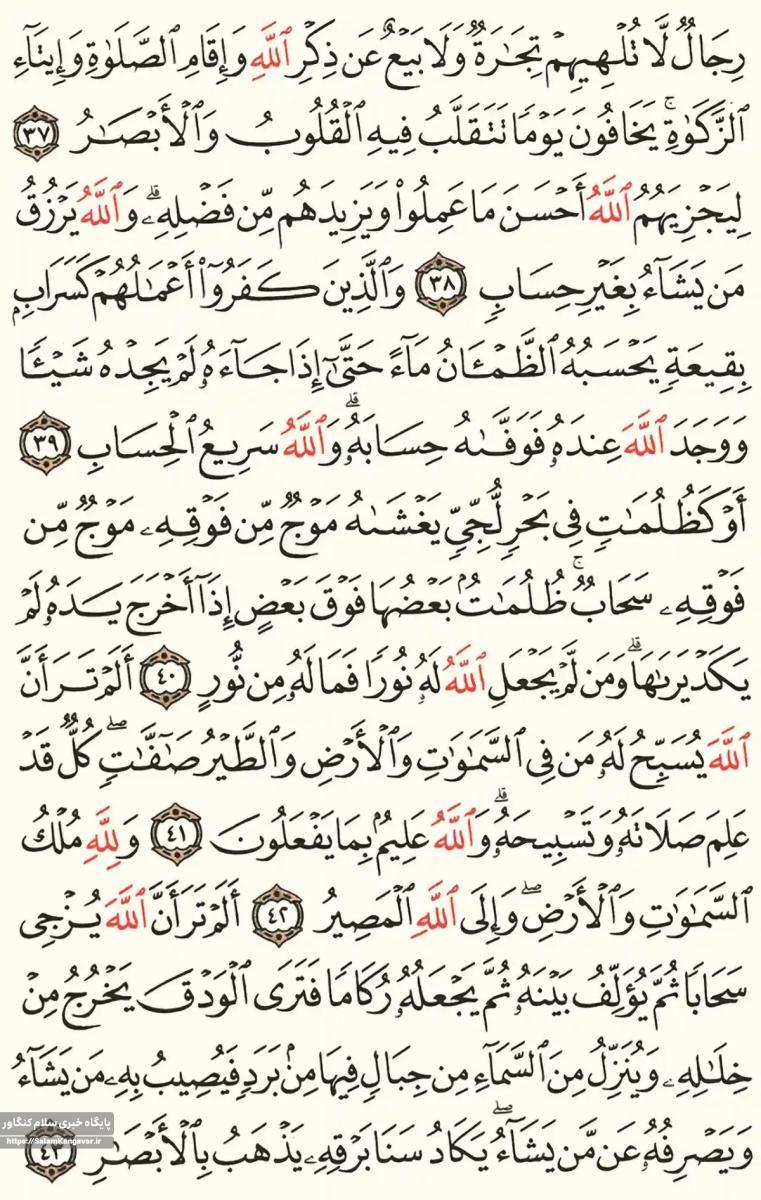 رِجَالٌ لَّا تُلْهِيهِمْ تِجَٰرَةٌ وَلَا بَيْعٌ عَن ذِكْرِ ٱللَّهِ وَإِقَامِ ٱلصَّلَوٰةِ وَإِيتَآءِ
ٱلزَّكَوٰةِ ۙ يَخَافُونَ يَوْمًا تَتَقَلَّبُ فِيهِ ٱلْقُلُوبُ وَٱلْأَبْصَٰرُ ٣٧
لِيَجْزِيَهُمُ ٱللَّهُ أَحْسَنَ مَا عَمِلُوا۟ وَيَزِيدَهُم مِّن فَضْلِهِۦ ۗ وَٱللَّهُ يَرْزُقُ
مَن يَشَآءُ بِغَيْرِ حِسَابٍ ٣٨ وَٱلَّذِينَ كَفَرُوٓا۟ أَعْمَٰلُهُمْ كَسَرَابٍ
بِقِيعَةٍ يَحْسَبُهُ ٱلظَّمْـَٔانُ مَآءً حَتَّىٰٓ إِذَا جَآءَهُۥ لَمْ يَجِدْهُ شَيْـًٔا
وَوَجَدَ ٱللَّهَ عِندَهُۥ فَوَفَّىٰهُ حِسَابَهُۥ ۗ وَٱللَّهُ سَرِيعُ ٱلْحِسَابِ ٣٩
أَوْ كَظُلُمَٰتٍ فِى بَحْرٍ لُّجِّىٍّ يَغْشَىٰهُ مَوْجٌ مِّن فَوْقِهِۦ مَوْجٌ مِّن
فَوْقِهِۦ سَحَابٌ ۚ ظُلُمَٰتٌۢ بَعْضُهَا فَوْقَ بَعْضٍ إِذَآ أَخْرَجَ يَدَهُۥ لَمْ
يَكَدْ يَرَىٰهَا ۗ وَمَن لَّمْ يَجْعَلِ ٱللَّهُ لَهُۥ نُورًا فَمَا لَهُۥ مِن نُّورٍ ٤٠ أَلَمْ تَرَ أَنَّ
ٱللَّهَ يُسَبِّحُ لَهُۥ مَن فِى ٱلسَّمَٰوَٰتِ وَٱلْأَرْضِ وَٱلطَّيْرُ صَٰٓفَّٰتٍ ۖ كُلٌّ قَدْ
عَلِمَ صَلَاتَهُۥ وَتَسْبِيحَهُۥ ۗ وَٱللَّهُ عَلِيمٌۢ بِمَا يَفْعَلُونَ ٤١ وَلِلَّهِ مُلْكُ
ٱلسَّمَٰوَٰتِ وَٱلْأَرْضِ ۖ وَإِلَى ٱللَّهِ ٱلْمَصِيرُ ٤٢ أَلَمْ تَرَ أَنَّ ٱللَّهَ يُزْجِى
سَحَابًا ثُمَّ يُؤَلِّفُ بَيْنَهُۥ ثُمَّ يَجْعَلُهُۥ رُكَامًا فَتَرَى ٱلْوَدْقَ يَخْرُجُ مِنْ
خِلَٰلِهِۦ وَيُنَزِّلُ مِنَ ٱلسَّمَآءِ مِن جِبَالٍ فِيهَا مِنۢ بَرَدٍ فَيُصِيبُ بِهِۦ مَن يَشَآءُ
وَيَصْرِفُهُۥ عَن مَّن يَشَآءُ ۖ يَكَادُ سَنَا بَرْقِهِۦ يَذْهَبُ بِٱلْأَبْصَٰرِ ٤٣
پایگاه خبری سلام کنگاور
https://SalamKangavar.ir